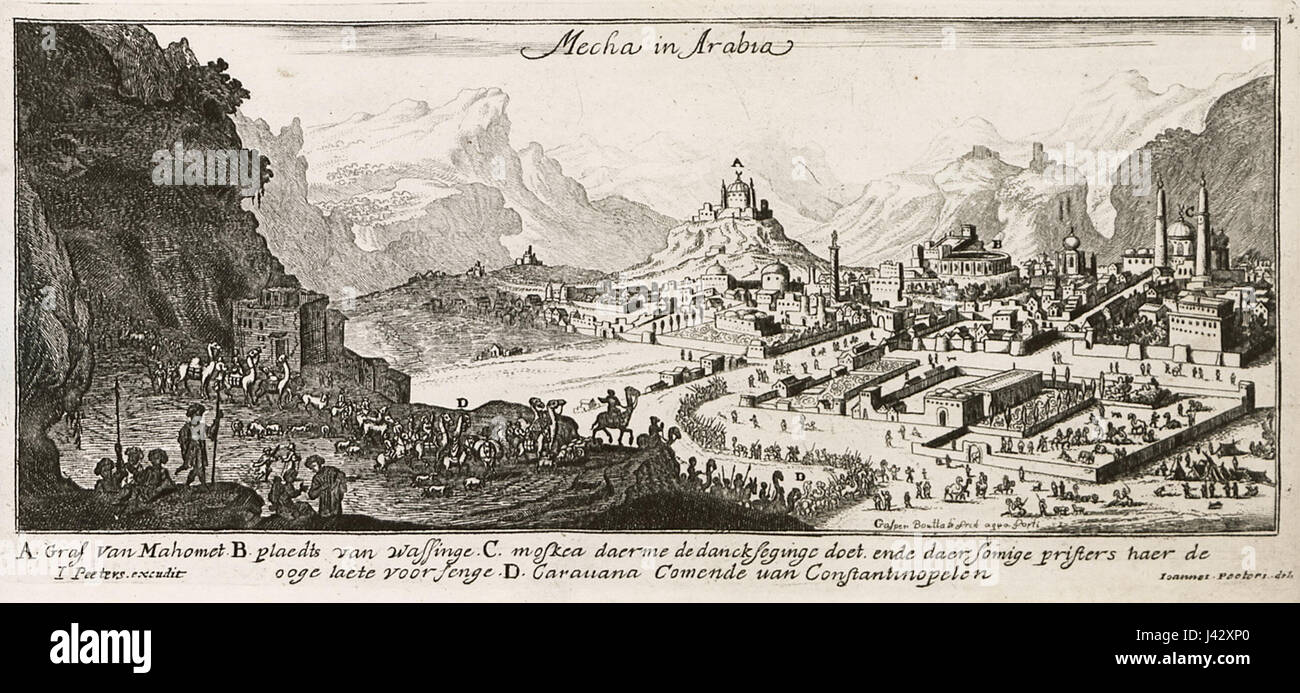 Mecha in Arabia
A
B
C
D
D
Gasper Bouttats fecit aqua forti
A. Graf Van Mahomet. B. plaedts van wassinge. C. moskea daerme de danckseginge doet. ende daer somige pristers haer de
ooge laete voor senge. D. Caravana Comende van Constantinopelen
I Peeters. excudit
Ioannes. Peeters. del.
alamy
alamy stock photo
J42XP0
www.alamy.com